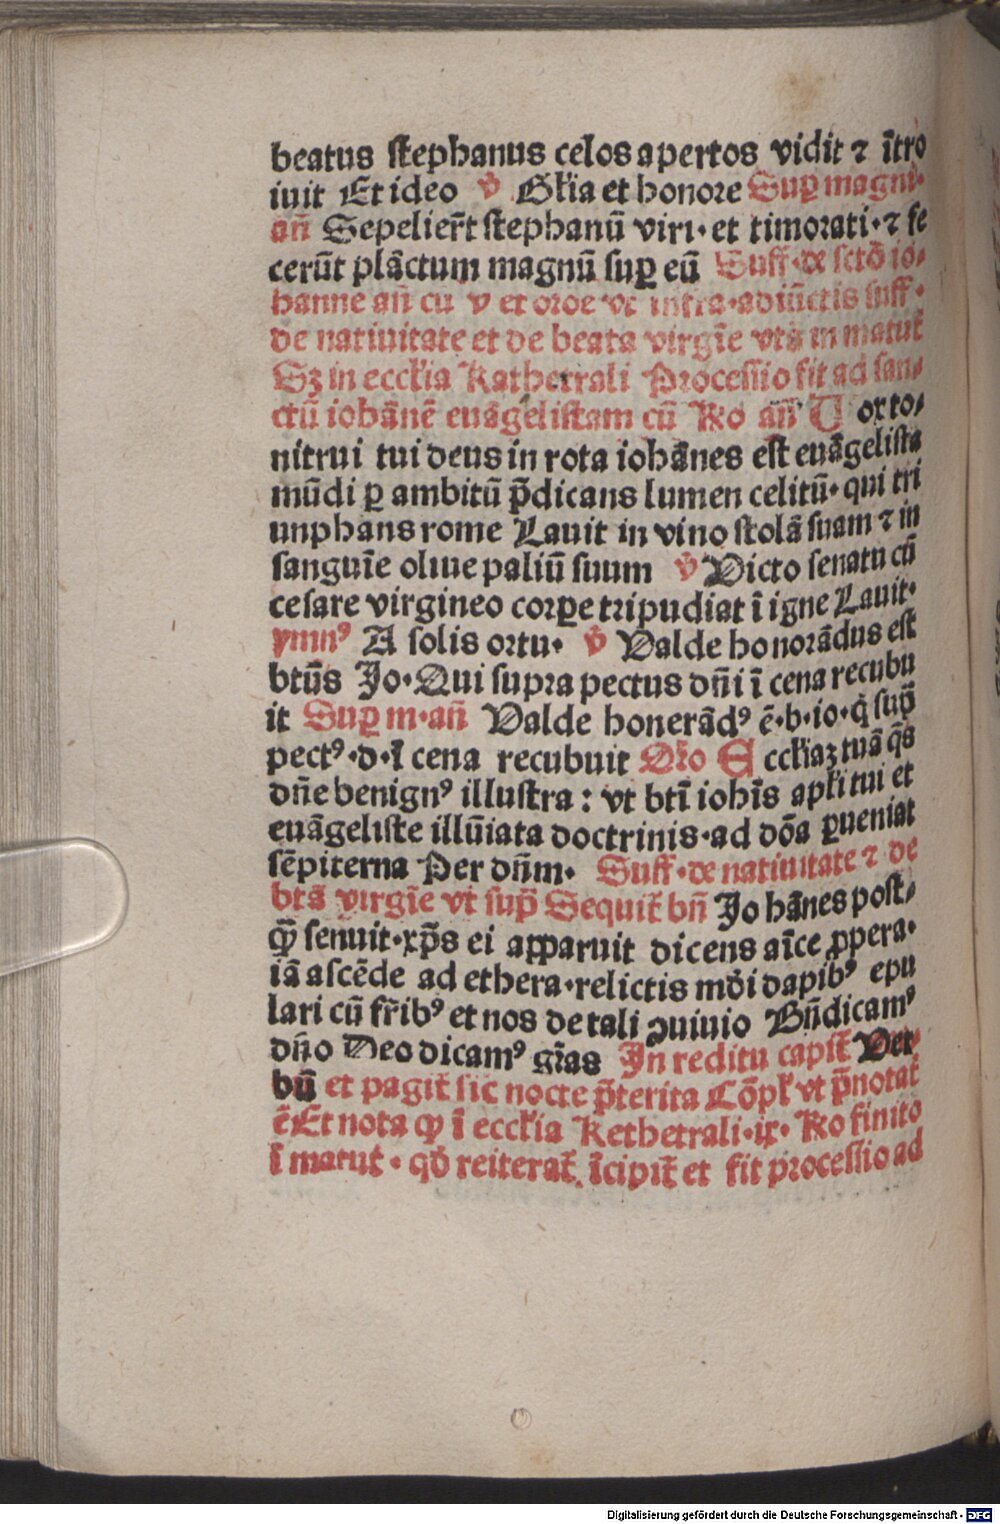 beatus stephanus celos apertos vidit ⁊ ītro
iuit Et ideo ꟟ Gľia et honore Suꝑ magni·
añ Sepelier̄t stephanū viri· et timorati·⁊ fe
cerūt plāctum magnū suꝑ eū Suff·de scto io⸗
hanne añ cū ꟟ et oroe vt infra·adiūctis suff·
de natiuitate et de beata virgīe vts in matut̄
Sꝫ in eccľia Katherrali Processio fit ad san⸗
ctū iohānē euāgelistam cū Ro añ U ox to⸗
nitrui tui deus in rota iohānes est euāgelista
mūdi ꝑ ambitū p̄dicans lumen celitū· qui tri
unphans rome Lauit in vino stolā suam ⁊ in
sanguīe oliue paliū suum ꟟ Victo senatu cū
cesare virgineo corꝑe tripudiat ī igne Lauit·
ymnꝰ A solis ortu· ꟟ Valde honorādus est
btūs Jo·Qui supra pectus dñi ī cena recubu
it Suꝑ m·añ Valde honerādꝰ ē·b·io·q̇ sup̄
pectꝰ·d·ī cena recubuit Oŕo E ccľiaꝫ tuā q̄s
dñe benignꝰ illustra : vt btī iohīs apľi tui et
euāgeliste illūiata doctrinis·ad dōa ꝑueniat
sēpiterna Per dñm· Suff·de natiuitate ⁊ de
btā virgīe vt sup̄ Sequit̄ bñ Johānes post⸗
qꝫ senuit·xp̄s ei apparuit dicens aīce ꝓpera·
iā ascēde ad ethera·relictis mōi dapibꝰ epu
lari cū fr̄ibꝰ et nos de tali ꝯuiuio Bñdicamꝰ
dño Deo dicamꝰ gr̄as In reditu capit̄ Ver
bū et pagit̄ sic nocte p̄terita Cōpľ vt p̄notat̄
ē·Et nota ꝙ ī eccľia Kethetrali·ix· Ro finito
ī matut̄· qď reiterat̄. īcipit̄ et fit processio ad
Digitalisierung gefördert durch die Deutsche Forschungsgemeinschaft - DFG